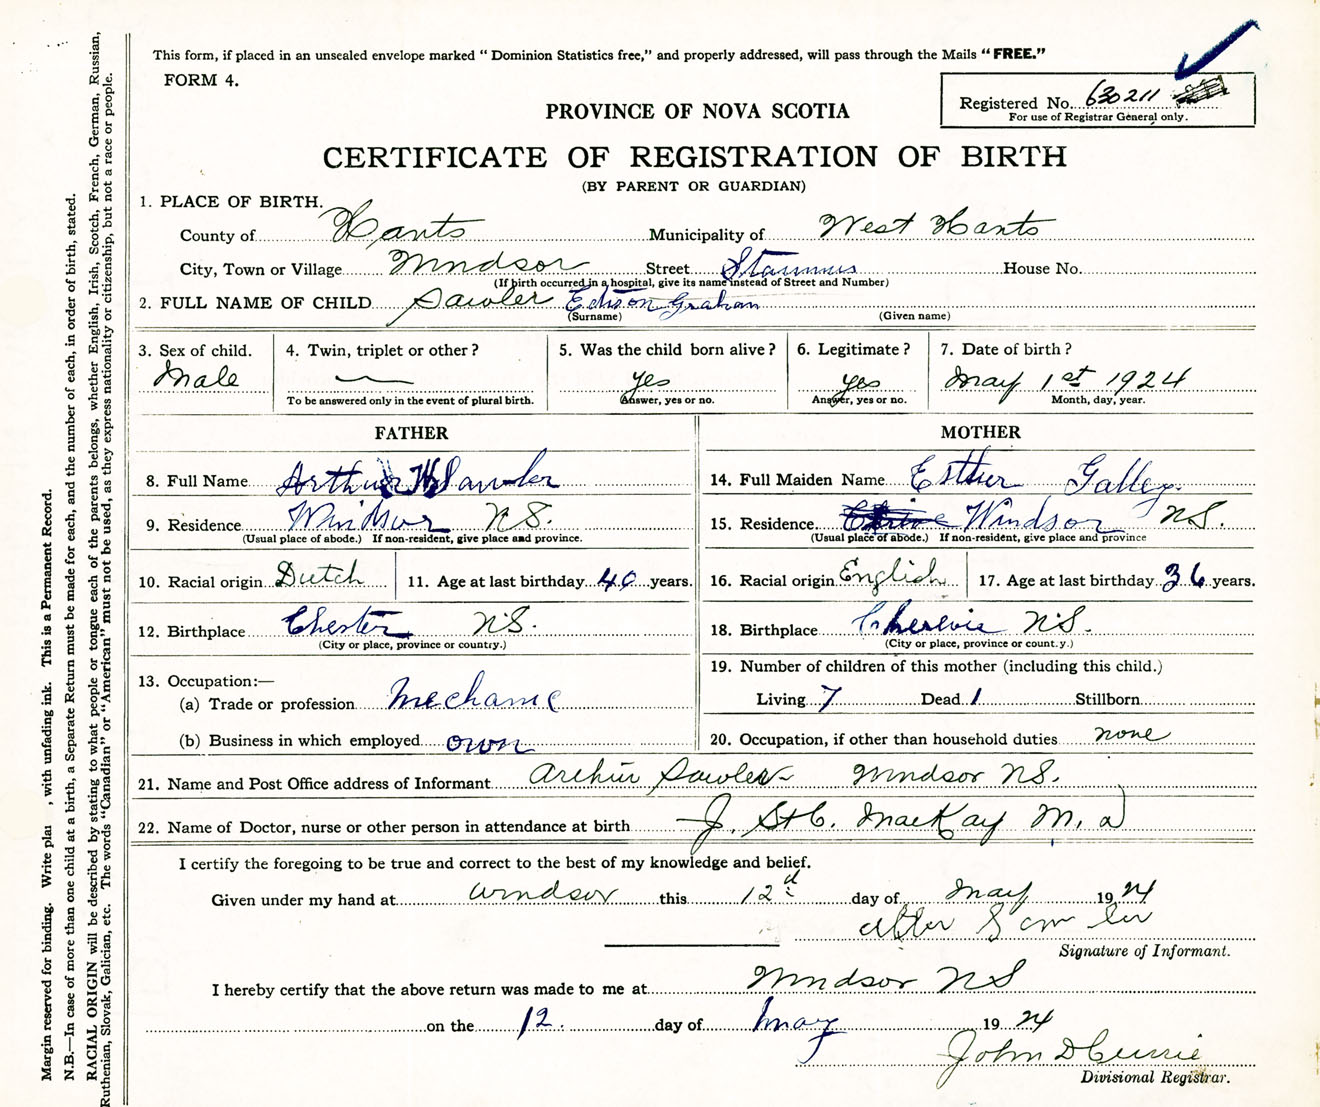 This form, if placed in an unsealed envelope marked "Dominion Statistics free," and properly addressed, will pass through the Mails "FREE."
FORM 4.
Registered No. 630211
For use of Registrar General only.
PROVINCE OF NOVA SCOTIA
CERTIFICATE OF REGISTRATION OF BIRTH
(BY PARENT OR GUARDIAN)
1. PLACE OF BIRTH.
County of Hants Municipality of West Hants
City, Town or Village Windsor Street Stannus House No.
(If birth occurred in a hospital, give its name instead of Street and Number)
2. FULL NAME OF CHILD Sawler Edison Graham
(Surname) (Given name)
3. Sex of child. 4. Twin, triplet or other? 5. Was the child born alive? 6. Legitimate? 7. Date of birth?
Male yes yes May 1st 1924
To be answered only in the event of plural birth. Answer, yes or no. Answer, yes or no. Month, day, year.
FATHER MOTHER
8. Full Name Arthur W Sawler 14. Full Maiden Name Esther Galley
9. Residence Windsor N.S. 15. Residence Windsor N.S.
(Usual place of abode.) If non-resident, give place and province. (Usual place of abode.) If non-resident, give place and province
10. Racial origin Dutch 11. Age at last birthday 40 years. 16. Racial origin English 17. Age at last birthday 36 years.
12. Birthplace Chester N.S. 18. Birthplace Cheverie N.S.
(City or place, province or country.) (City or place, province or count.y.)
19. Number of children of this mother (including this child.)
13. Occupation:—
(a) Trade or profession Mechanic Living 7 Dead 1 Stillborn
(b) Business in which employed own 20. Occupation, if other than household duties none
21. Name and Post Office address of Informant Arthur Sawler - Windsor N.S.
22. Name of Doctor, nurse or other person in attendance at birth J. St C. MacKay M.D
I certify the foregoing to be true and correct to the best of my knowledge and belief.
Given under my hand at Windsor this 12d day of May 1924
Signature of Informant.
I hereby certify that the above return was made to me at Windsor NS
on the 12. day of May 1924
John D Currie
Divisional Registrar.
Margin reserved for binding. Write plai , with unfading ink. This is a Permanent Record.
N.B.—In case of more than one child at a birth, a Separate Return must be made for each, and the number of each, in order of birth, stated.
RACIAL ORIGIN will be described by stating to what people or tongue each of the parents belongs, whether English, Irish, Scotch, French, German, Russian,
Ruthenian, Slovak, Galician, etc. The words "Canadian" or "American" must not be used, as they express nationality or citizenship, but not a race or people.